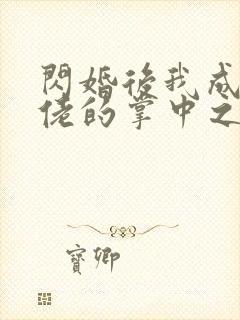 閃婚後我成
佬的掌中之
寶卿